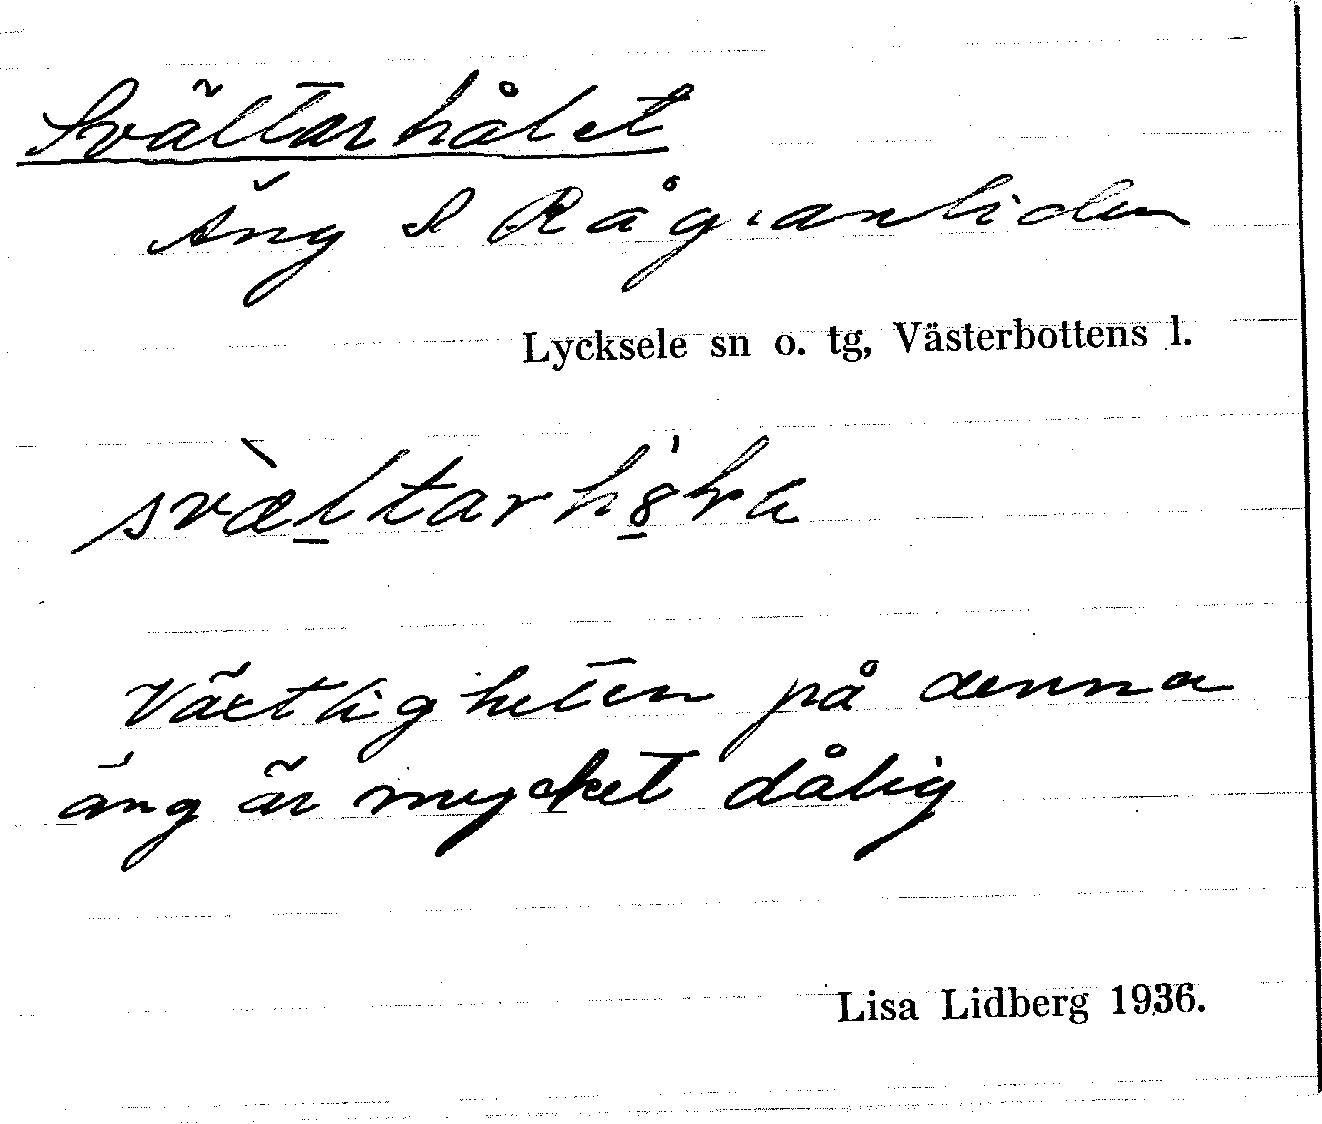 Svältarhålet
Äng S Råg
Lycksele sn o. tg, Västerbottens l.
Växtligheten på denna
äng är mycket dålig
Lisa Lidberg 1936.